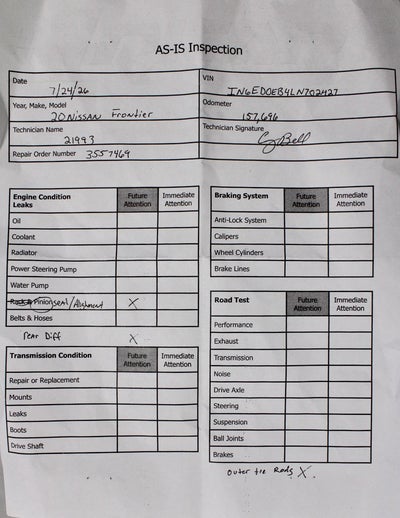 AS-IS Inspection
Date 7/24/26
VIN 1N6ED0EB4LN702427
Year, Make, Model 20 Nissan Frontier
Odometer 157,696
Technician Name 21993
Technician Signature
Repair Order Number 3557469
Engine Condition Leaks Future Attention Immediate Attention
Oil
Coolant
Radiator
Power Steering Pump
Water Pump
Rack & Pinion seal/ X
Belts & Hoses
rear Diff X
Transmission Condition Future Attention Immediate Attention
Repair or Replacement
Mounts
Leaks
Boots
Drive Shaft
Braking System Future Attention Immediate Attention
Anti-Lock System
Calipers
Wheel Cylinders
Brake Lines
Road Test Future Attention Immediate Attention
Performance
Exhaust
Transmission
Noise
Drive Axle
Steering
Suspension
Ball Joints
Brakes
outer tie Rods X